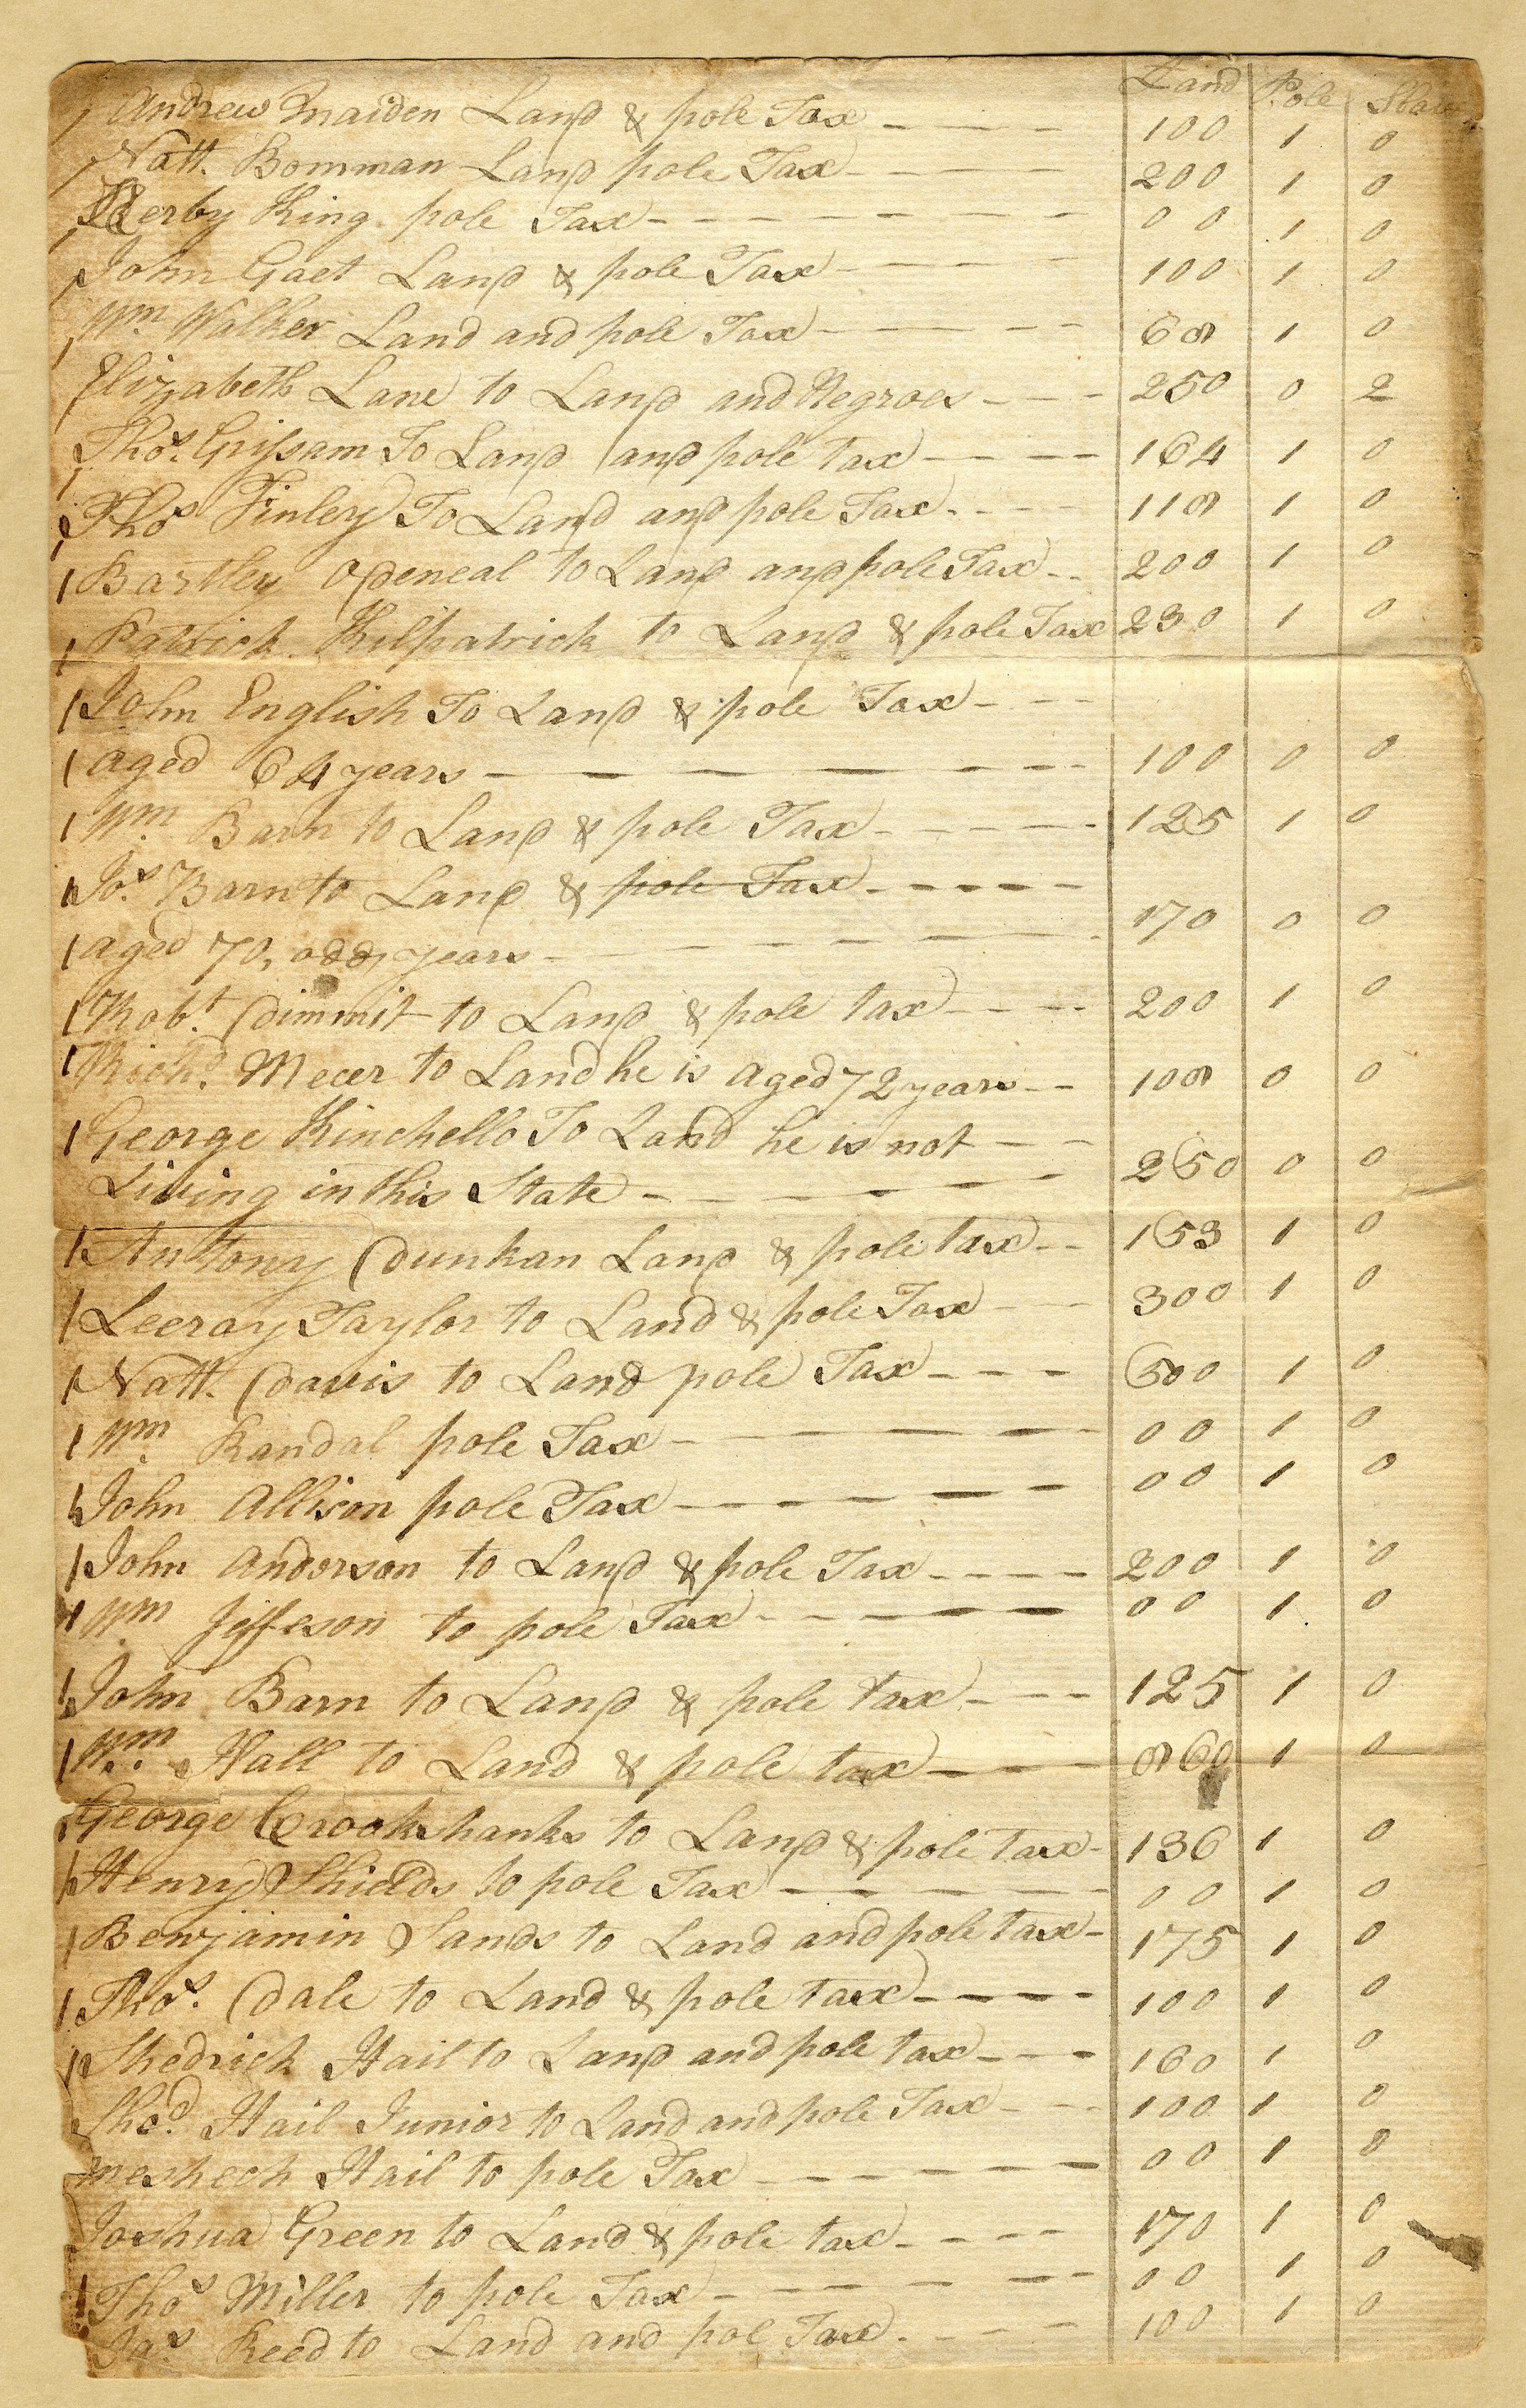 Land Pole Slave
Andrew Maiden Land & pole Tax 100 1 0
Natt. Bomman Land pole Tax 200 1 0
Kerby King pole Tax 00 1 0
John Gaet Land & pole Tax 100 1 0
Wm. Walker Land and pole Tax 68 1 0
Elizabeth Lane to Land and Negroes 250 0 2
Thos. Grissam To Land and pole tax 164 1 0
Thos Finley To Land and pole Tax 118 1 0
Bartley Odeneal to Land and pole Tax 200 1 0
Patrick Kilpatrick to Land & pole Tax 230 1 0
John English To Land & pole Tax
aged 64 years 100 0 0
Wm. Barn to Land & pole Tax 125 1 0
Jos. Barn to Land & pole Tax
aged 70, odd years 170 0 0
Robt. Dimmit to Land & pole tax 200 1 0
Richd. Mecer to Land he is aged 72 years 108 0 0
George Kinchello To Land he is not
Living in this State 250 0 0
Antony Dunkan Land & pole tax 153 1 0
Leeray Taylor to Land & pole Tax 300 1 0
Natt. Davis to Land pole Tax 500 1 0
Wm. Randal pole Tax 00 1 0
John Allison pole Tax 00 1 0
John Anderson to Land & pole Tax 200 1 0
Wm. Jeffeson to pole Tax 00 1 0
John Barn to Land & pole tax 125 1 0
Wm. Hall to Land & pole tax 860 1 0
George Crookshanks to Land & pole tax 136 1 0
Henry Shields to pole Tax 00 1 0
Benjamin Sands to Land and pole tax 175 1 0
Thos. Dale to Land & pole tax 100 1 0
Shedrick Hail to Land and pole tax 160 1 0
Shed. Hail Junior to Land and pole Tax 100 1 0
Meshech Hail to pole Tax 00 1 0
Joshua Green to Land & pole tax 170 1 0
Thos Miller to pole Tax 00 1 0
Jas. Reed to Land and pol Tax 100 1 0